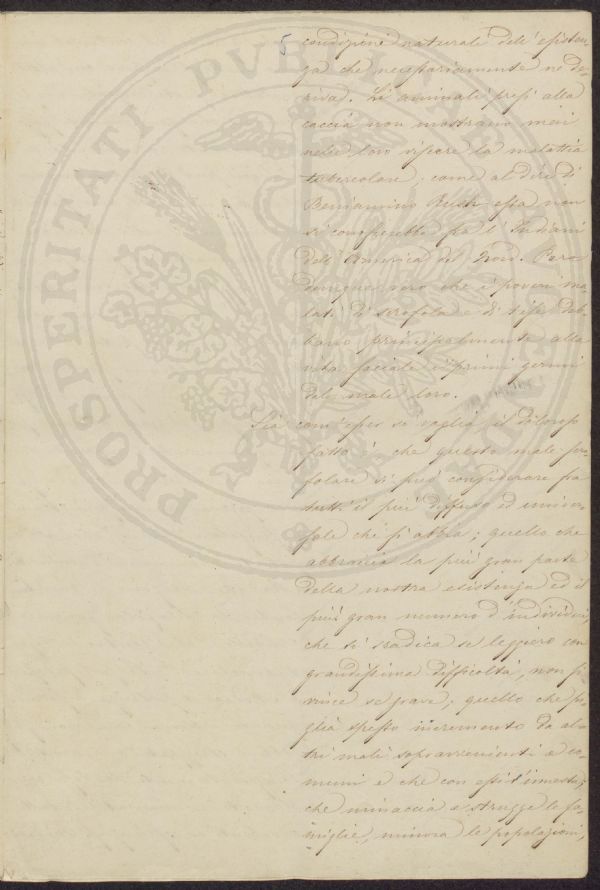 5
condizioni naturali dell' esisten-
za che necessariamente ne de-
riva. Li animali presi alla
caccia non mostrano mai
nelle loro viscere la malattia
tubercolare; come al dire di
Beniamino Rush essa non
si conoscerebbe fra l' Indiani
dell' America del Nord. Pare
dunque vero che i poveri ma-
lati di scrofola e di tisi deb-
bano principalmente alla
vita sociale i primi germi
del male loro.
Sia com' esser si voglia il doloroso
fatto è che questo male scro-
folare si può considerare fra
tutti il più diffuso ed univer-
sale che si abbia; quello che
abbraccia la più gran parte
della nostra esistenza ed il
più gran numero d' individui,
che si sradica se leggiero con
grandissima difficoltà, non si
vince se grave; quello che pi-
glia spesso incremento da al-
tri mali sopravvenienti e co-
muni e che con essi s' innesta;
che minaccia e strugge le fa-
miglie, minora le popolazioni,
PROSPERITATI PVBLICAE